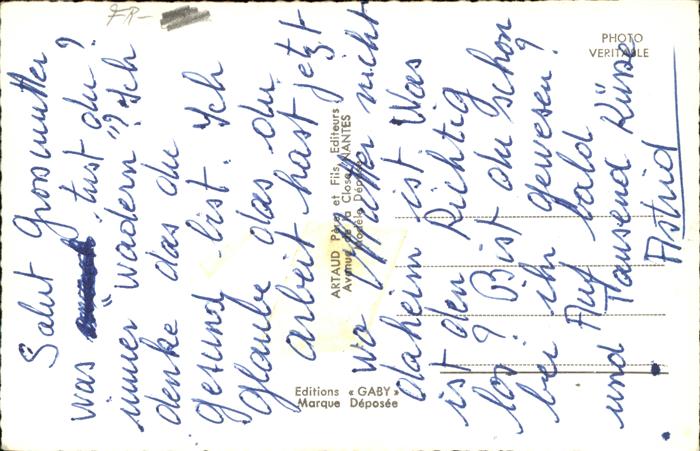 FR-
PHOTO
VERITABLE
Salut Grossmutter
was tust du?
immer "wadern"? Ich
denke das du
gesund bist. Ich
glaube das du
arbeit hast jetzt
wo nicht
daheim ist. Was
ist den Richtig
los? Bist du schon
bei ihr gewesen?
und Auf bald
Tausend Küsse
Astrid
ARTAUD Père et Fils, Editeurs
Avenue de la Close NANTES
Modèle Déposé
Editions « GABY »
Marque Déposée